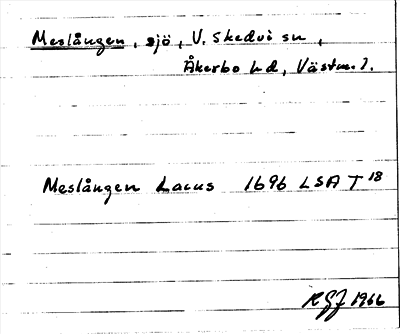 Meslången, sjö, V. Skedvi sn,
Åkerbo hd, Västm. l.
Meslången Lacus 1696 LSA T 18
RGJ 1966